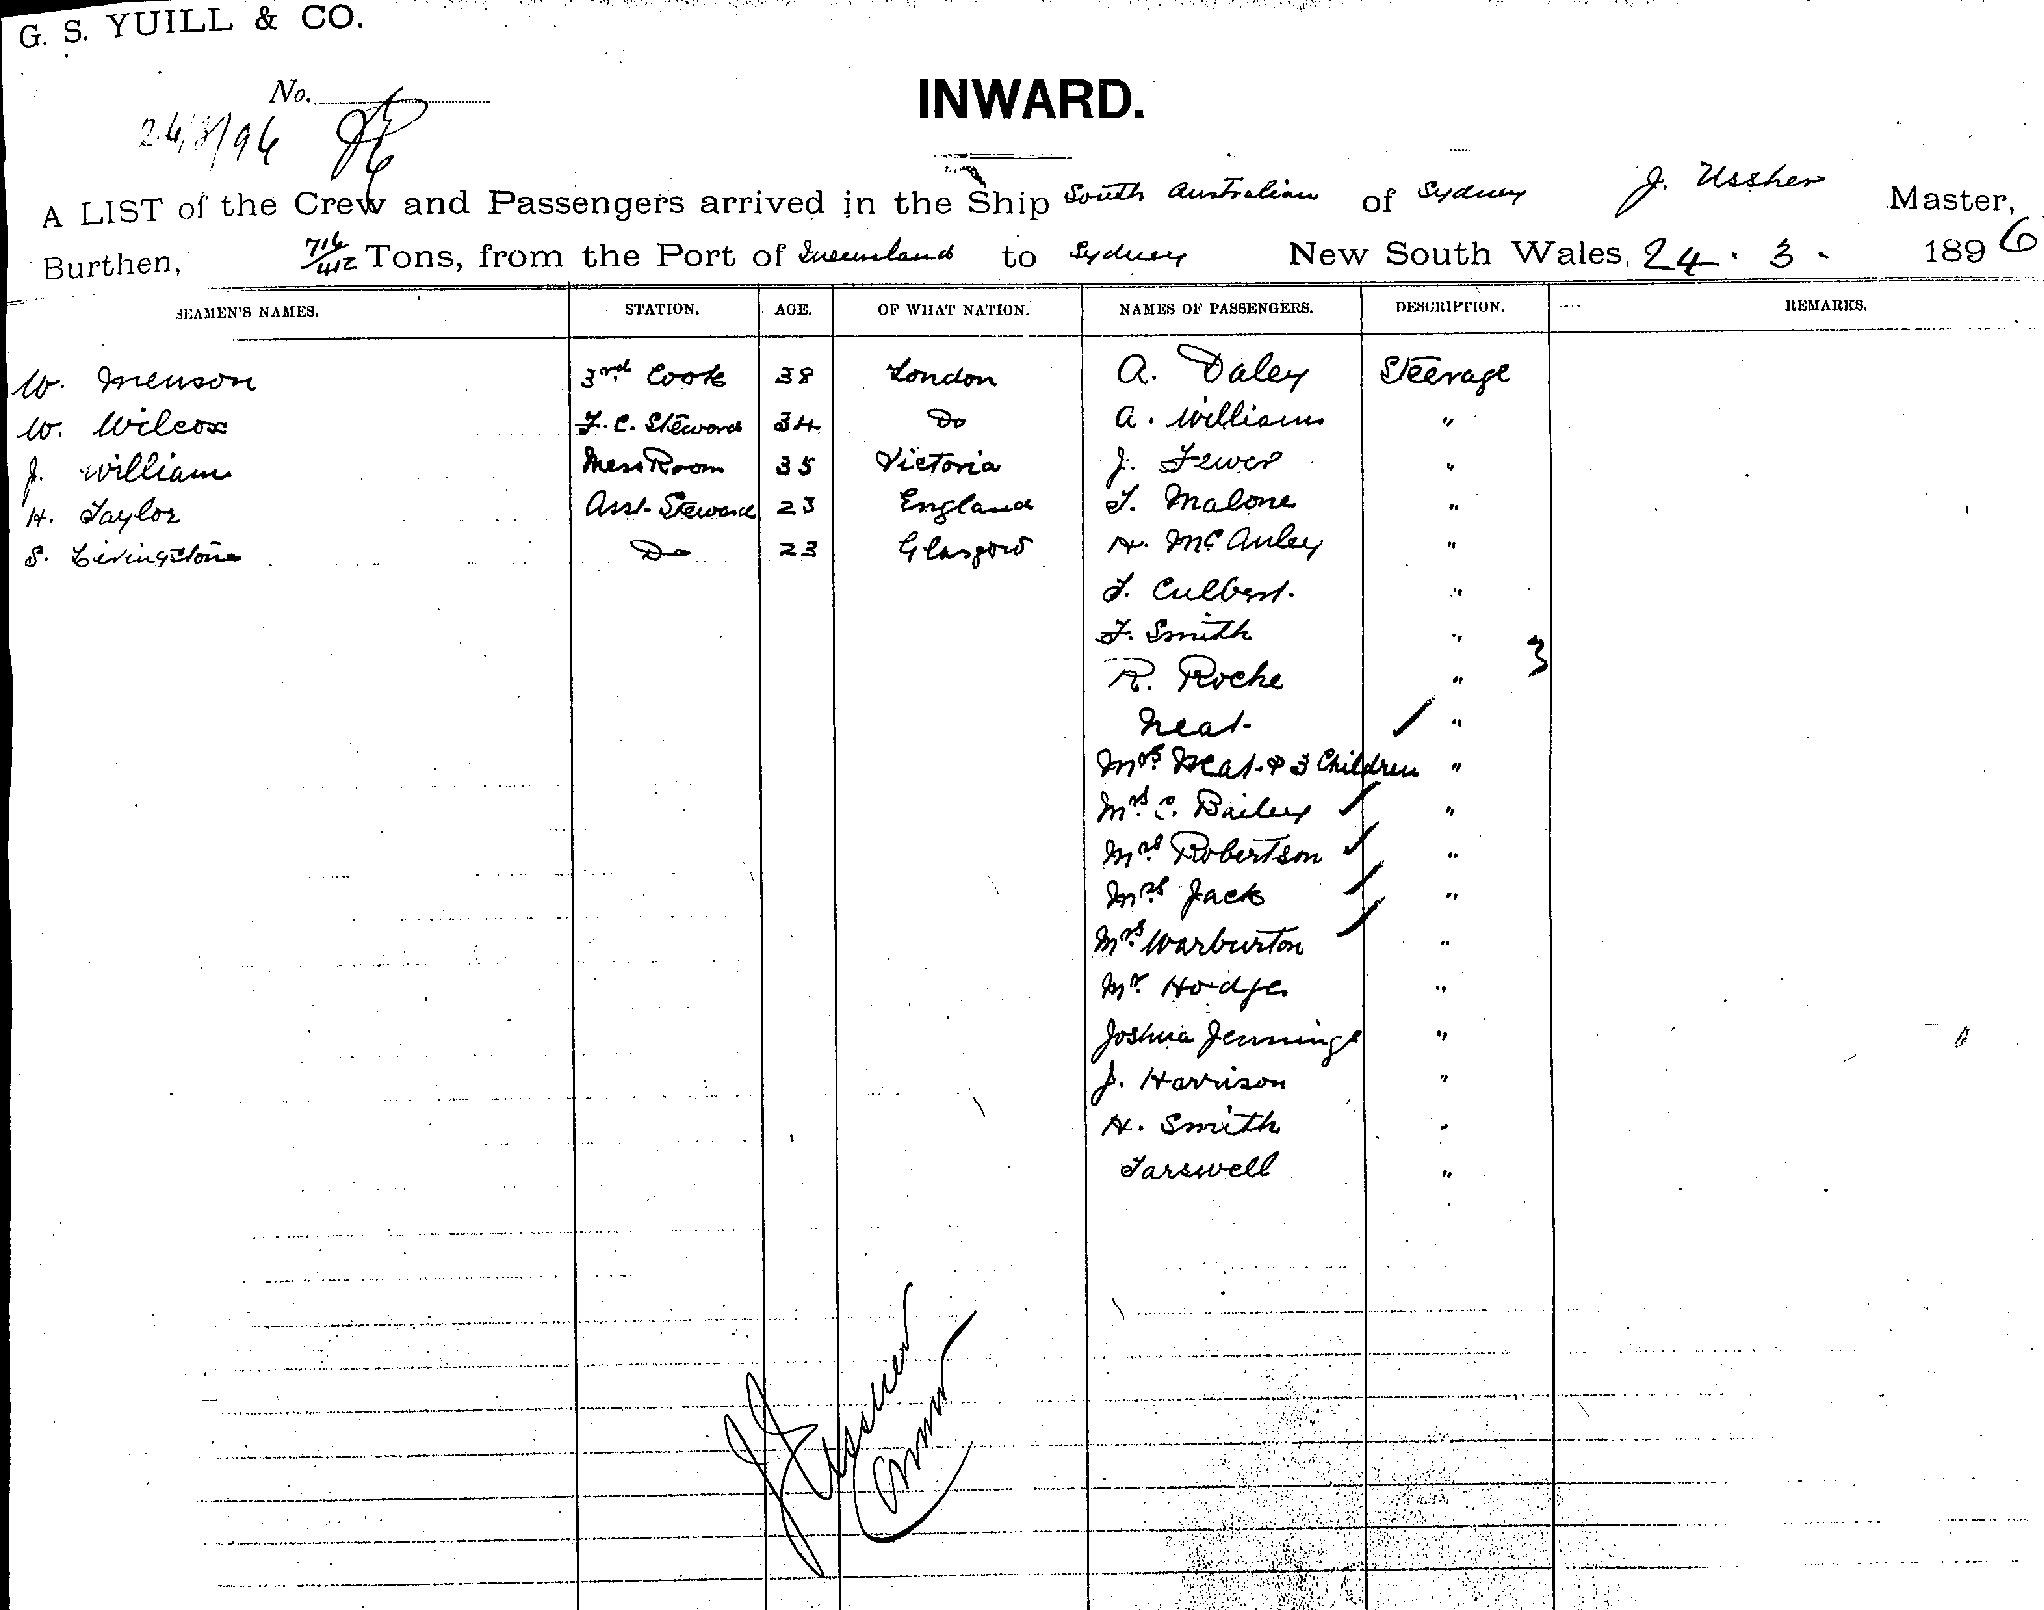 G. S. YUILL & CO.
No.
24/3/96
INWARD.
A LIST of the Crew and Passengers arrived in the Ship South Australian of Sydney J. Ussher Master,
Burthen, 716/412 Tons, from the Port of Queensland to Sydney New South Wales, 24 . 3 . 1896
SEAMEN'S NAMES. STATION. AGE. OF WHAT NATION. NAMES OF PASSENGERS. DESCRIPTION. REMARKS.
W. Menson 3rd Cook 38 London A. Daley Steerage
W. Wilcox F. C. Steward 34 Do A. Williams "
J. William Mess Room 35 Victoria J. "
H. Taylor Asst. Steward 23 England T. Malone "
S. Livingstone Do 23 Glasgow H. McAuley "
T. Culbert. "
F. Smith "
R. Roche " 3
Neat "
Mrs Neat & 3 Children "
Mrs C. Bailey "
Mrs Robertson "
Mrs Jack "
Mrs Warburton "
Mr Hodges "
Joshua Jennings "
J. Harrison "
H. Smith "
Tarswell "
J Ussher